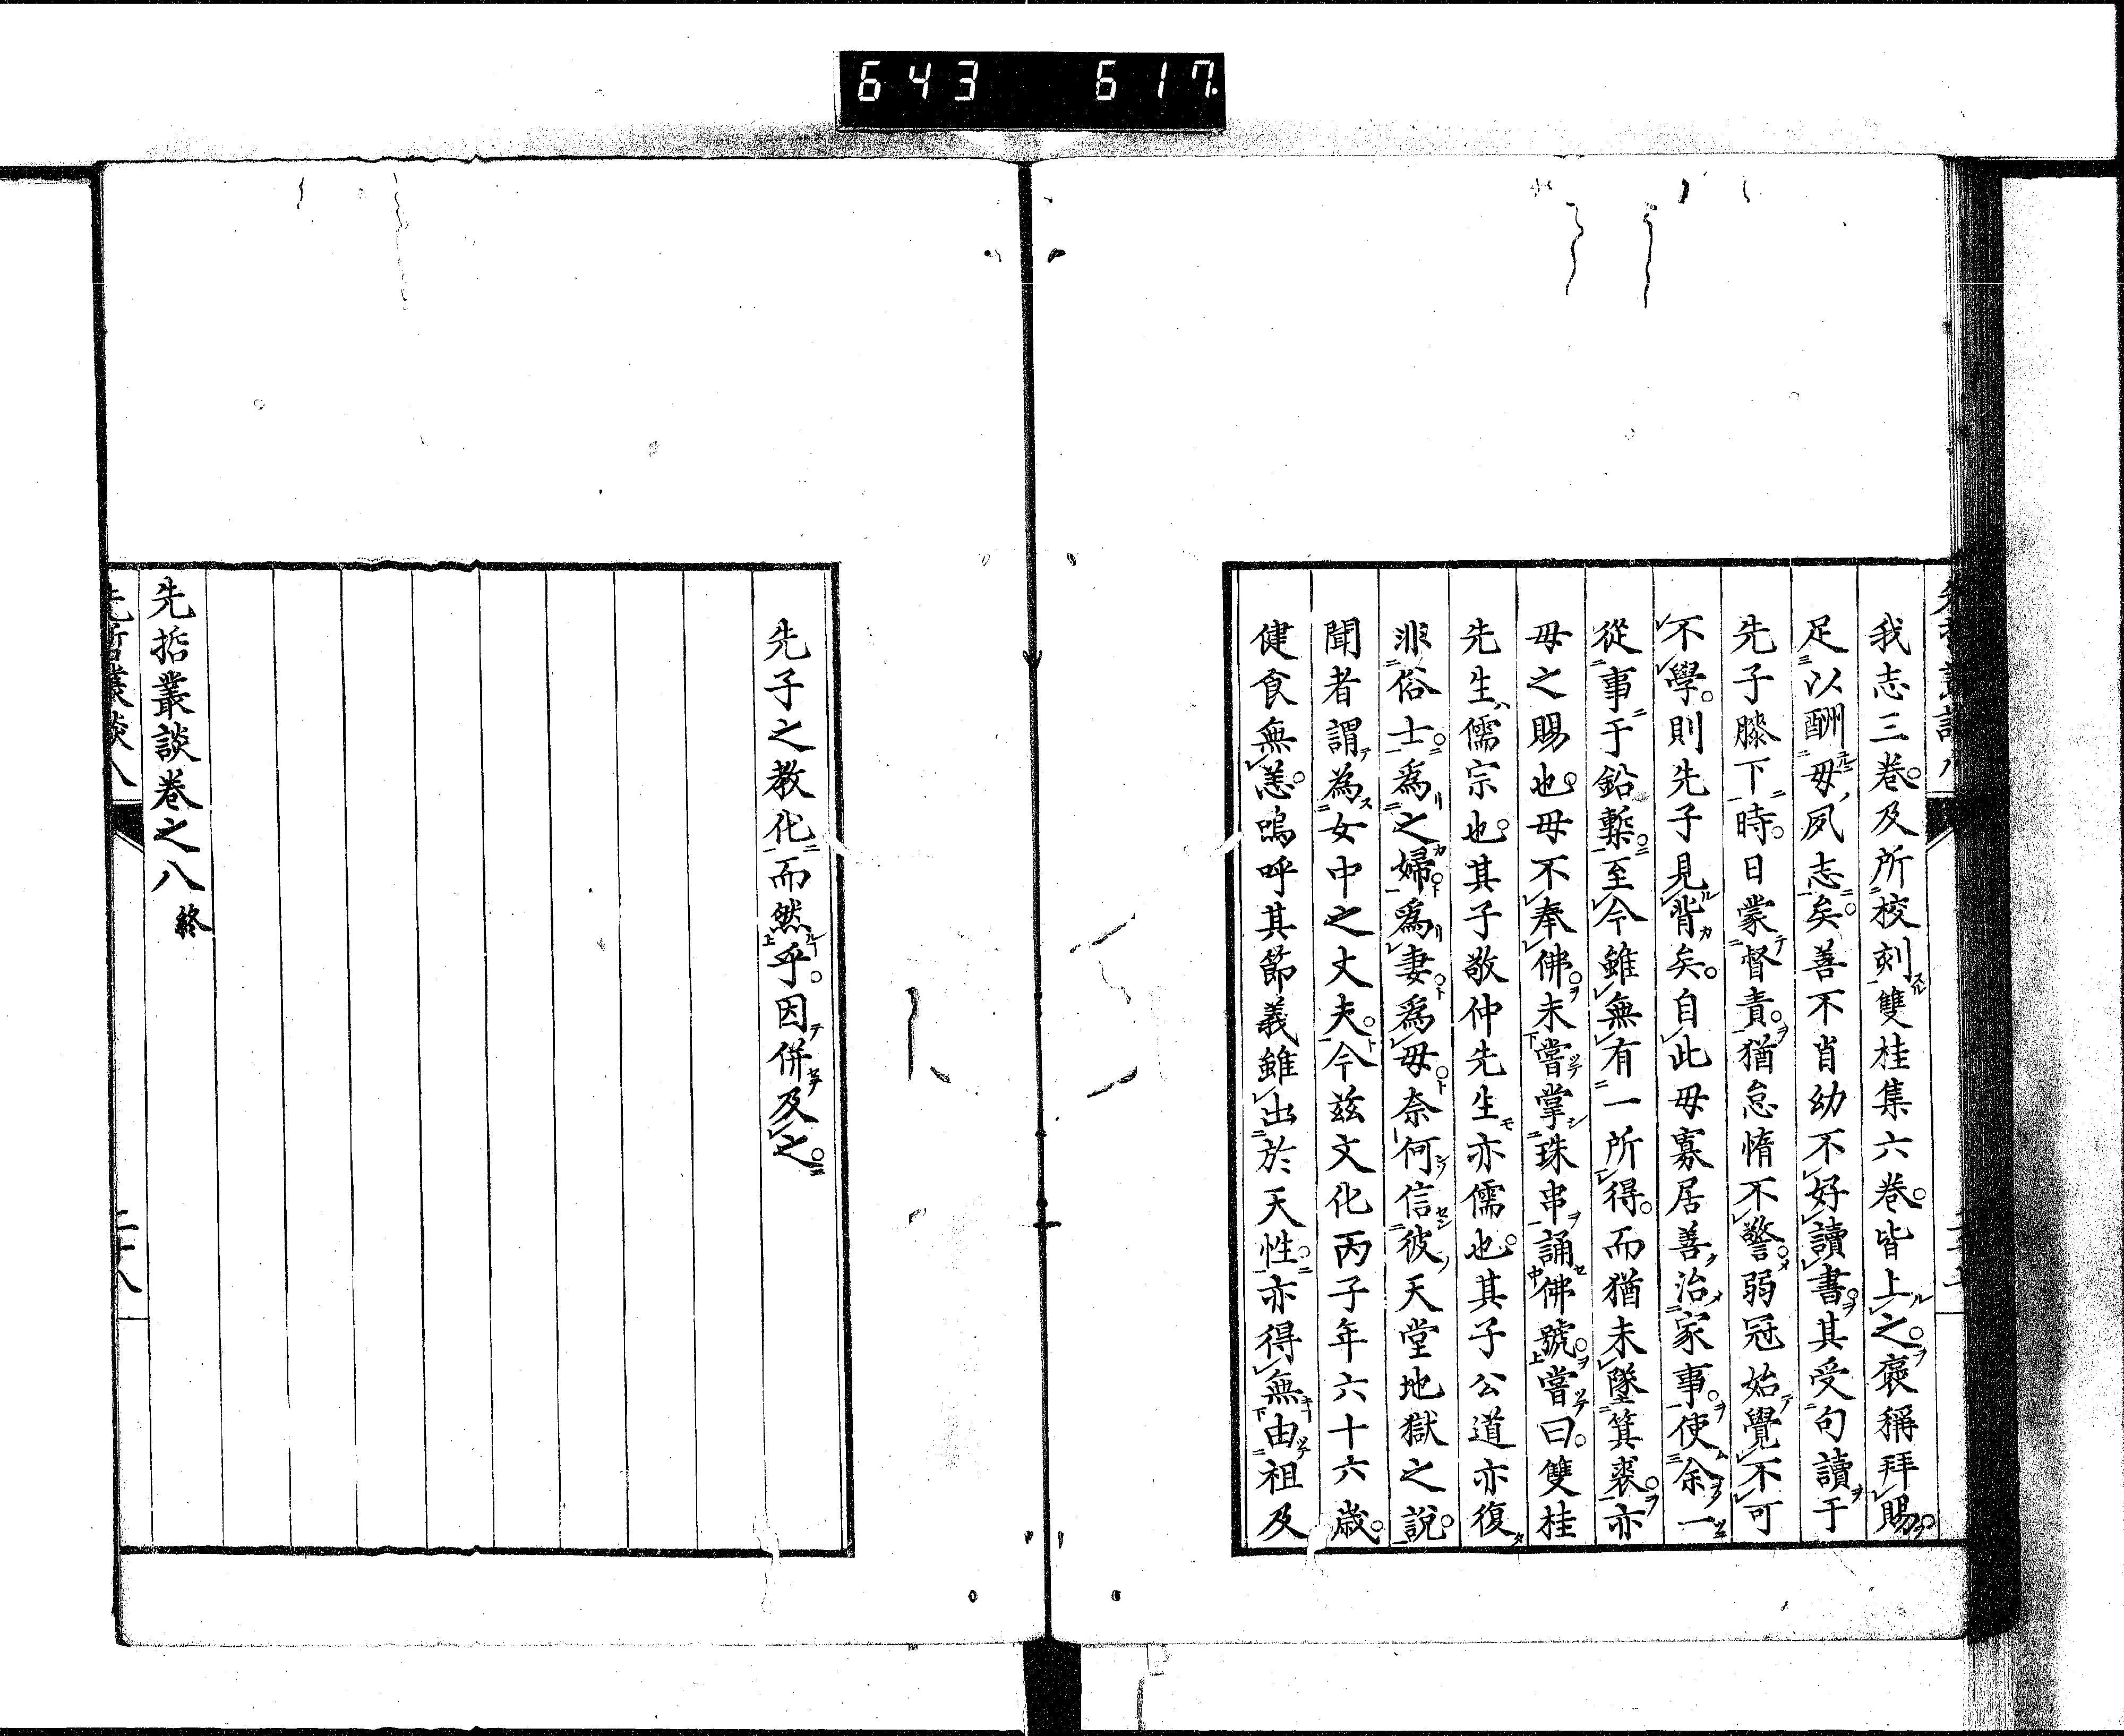 643 617
我志三卷。及所校刻雙桂集六卷。皆上之。褒稱拜賜。
足以酬母夙志矣。善不肖幼不好讀書。其受句讀于
先子膝下時。日蒙督責。猶怠惰不警。弱冠始覺不可
不學。則先子見背矣。自此母寡居善治家事。使余一
從事于鉛槧。至今雖無有一所得。而猶未墜箕裘。亦
母之賜也。母不奉佛。未嘗掌珠串誦佛號。嘗曰。雙桂
先生儒宗也。其子敬仲先生亦儒也。其子公道亦復
非俗士。爲之婦。爲妻。爲母。奈何信彼天堂地獄之說。
聞者謂為女中之丈夫。今茲文化丙子年六十六歳。
健食無恙。嗚呼其節義雖出於天性。亦得無由祖及
先子之教化而然乎。因併及之。
先哲叢談卷之八 終
先哲叢談八
二十八